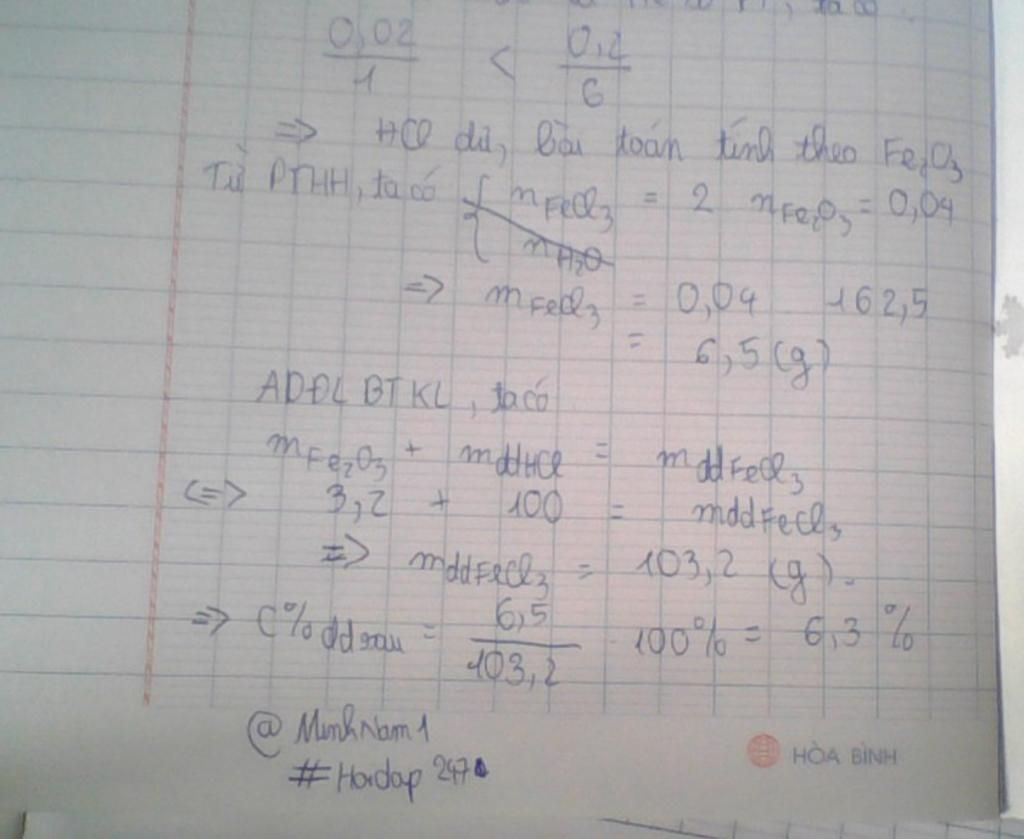 ta có
0,02/1 < 0,2/6
=> HCl dư, bài toán tính theo Fe2O3
Từ PTHH, ta có { nFeCl3 = 2 nFe2O3 = 0,04
nH2O
=> mFeCl3 = 0,04 162,5
= 6,5 (g)
ADĐL BTKL, ta có
mFe2O3 + mddHCl = mddFeCl3
<=> 3,2 + 100 = mddFeCl3
=> mddFeCl3 = 103,2 (g).
=> C%dd sau = 6,5/103,2 . 100% = 6,3 %
@ MinhNam1
# Hoidap 247
HÒA BÌNH